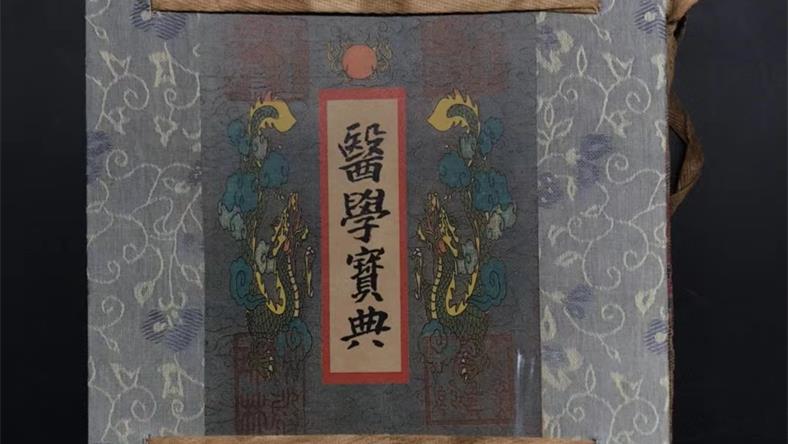 醫學寶典